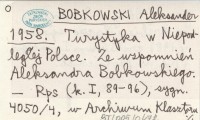 BOBKOWSKI Aleksander
1958. Turystyka w Niepod-
ległej Polsce. Ze wspomnień
Aleksandra Bobkowskiego.
— Rps (k. I, 89-96), sygn.
4050/4, w Archiwum Klasztoru